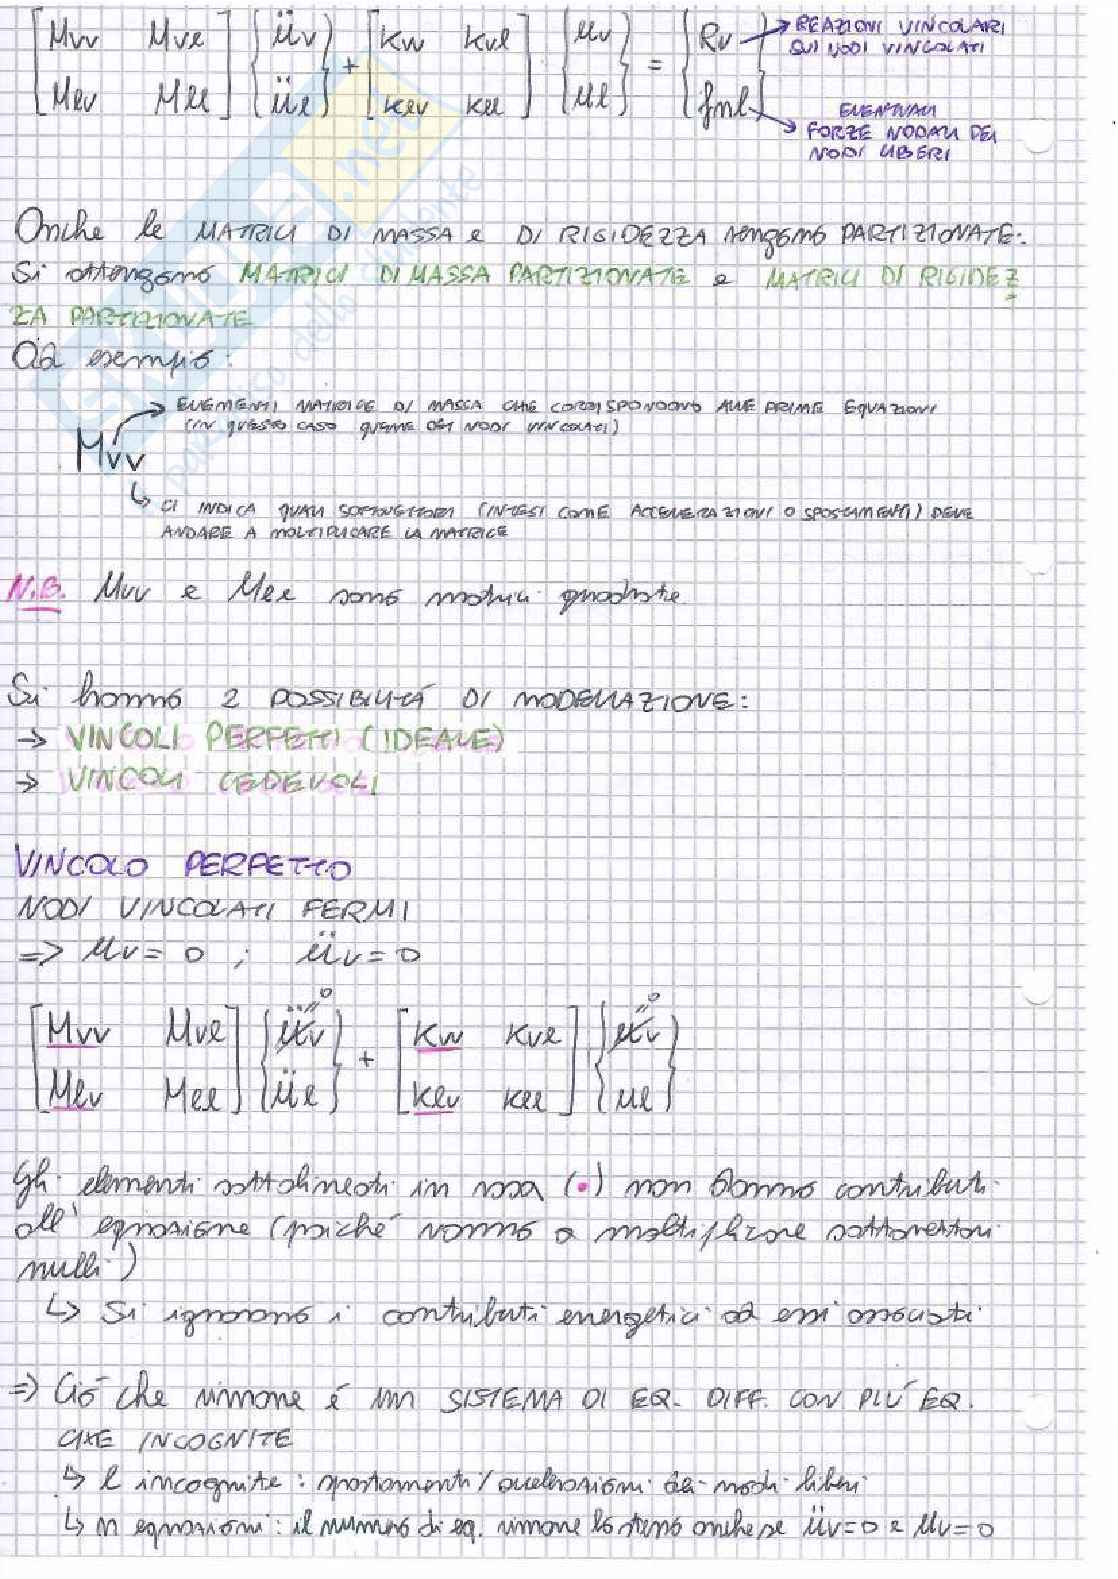 [Mvv Mvl] {üv} + [Kvv Kvl] {uv} = {Rv} → REAZIONI VINCOLARI
SUI NODI VINCOLATI
[Mlv Mll] {ül} [Klv Kll] {ul} {fnl} → EVENTUALI
FORZE NODALI DEI
NODI LIBERI
Anche le MATRICI DI MASSA e DI RIGIDEZZA vengono PARTIZIONATE:
Si ottengono MATRICI DI MASSA PARTIZIONATE e MATRICI DI RIGIDEZ
ZA PARTIZIONATE
Ad esempio:
→ ELEMENTI MATRICE DI MASSA CHE CORRISPONDONO ALLE PRIME EQUAZIONI
(IN QUESTO CASO QUELLE DEI NODI VINCOLATI)
Mvv
↳ CI INDICA QUALI SOTTOVETTORI (INTESI COME ACCELERAZIONI O SPOSTAMENTI) DEVE
ANDARE A MOLTIPLICARE LA MATRICE
N.B. Mvv e Mll sono matrici quadrate
Si hanno 2 POSSIBILITÁ DI MODELLAZIONE:
→ VINCOLI PERFETTI (IDEALE)
→ VINCOLI CEDEVOLI
VINCOLO PERFETTO
NODI VINCOLATI FERMI
=> uv = 0 ; üv = 0
[Mvv Mvl] {üv = 0} + [Kvv Kvl] {uv = 0}
[Mlv Mll] {ül} [Klv Kll] {ul}
Gli elementi sottolineati in rosa (•) non danno contributi
all'equazione (poiché vanno a moltiplicare sottovettori
nulli)
↳ Si ignorano i contributi energetici ad essi associati
=> Ció che rimane é un SISTEMA DI EQ. DIFF. CON PIU' EQ.
CHE INCOGNITE
↳ l incognite: spostamenti/accelerazioni dei nodi liberi
↳ n equazioni: il numero di eq. rimane lo stesso anche se üv=0 e uv=0